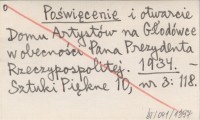 Poświęcenie i otwarcie
Domu Artystów na Głodówce
w obecności Pana Prezydenta
Rzeczypospolitej. 1934. –
Sztuki Piękne 10, nr 3: 118.